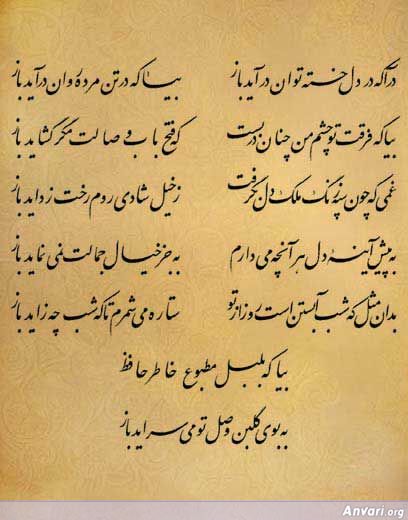 درآ که در دل خسته توان درآید باز بیا که در تن مرده روان درآید باز
بیا که فرقت تو چشم من چنان در بست که فتح باب وصالت مگر گشاید باز
غمی که چون سپه زنگ ملک دل بگرفت ز خیل شادی روم رخت زداید باز
به پیش آینهٔ دل هر آنچه می دارم به جز خیال جمالت نمی نماید باز
بدان مثل که شب آبستن است روز از تو ستاره می شمرم تا که شب چه زاید باز
بیا که بلبل مطبوع خاطر حافظ
به بوی گلبن وصل تو می سراید باز
Anvari.org